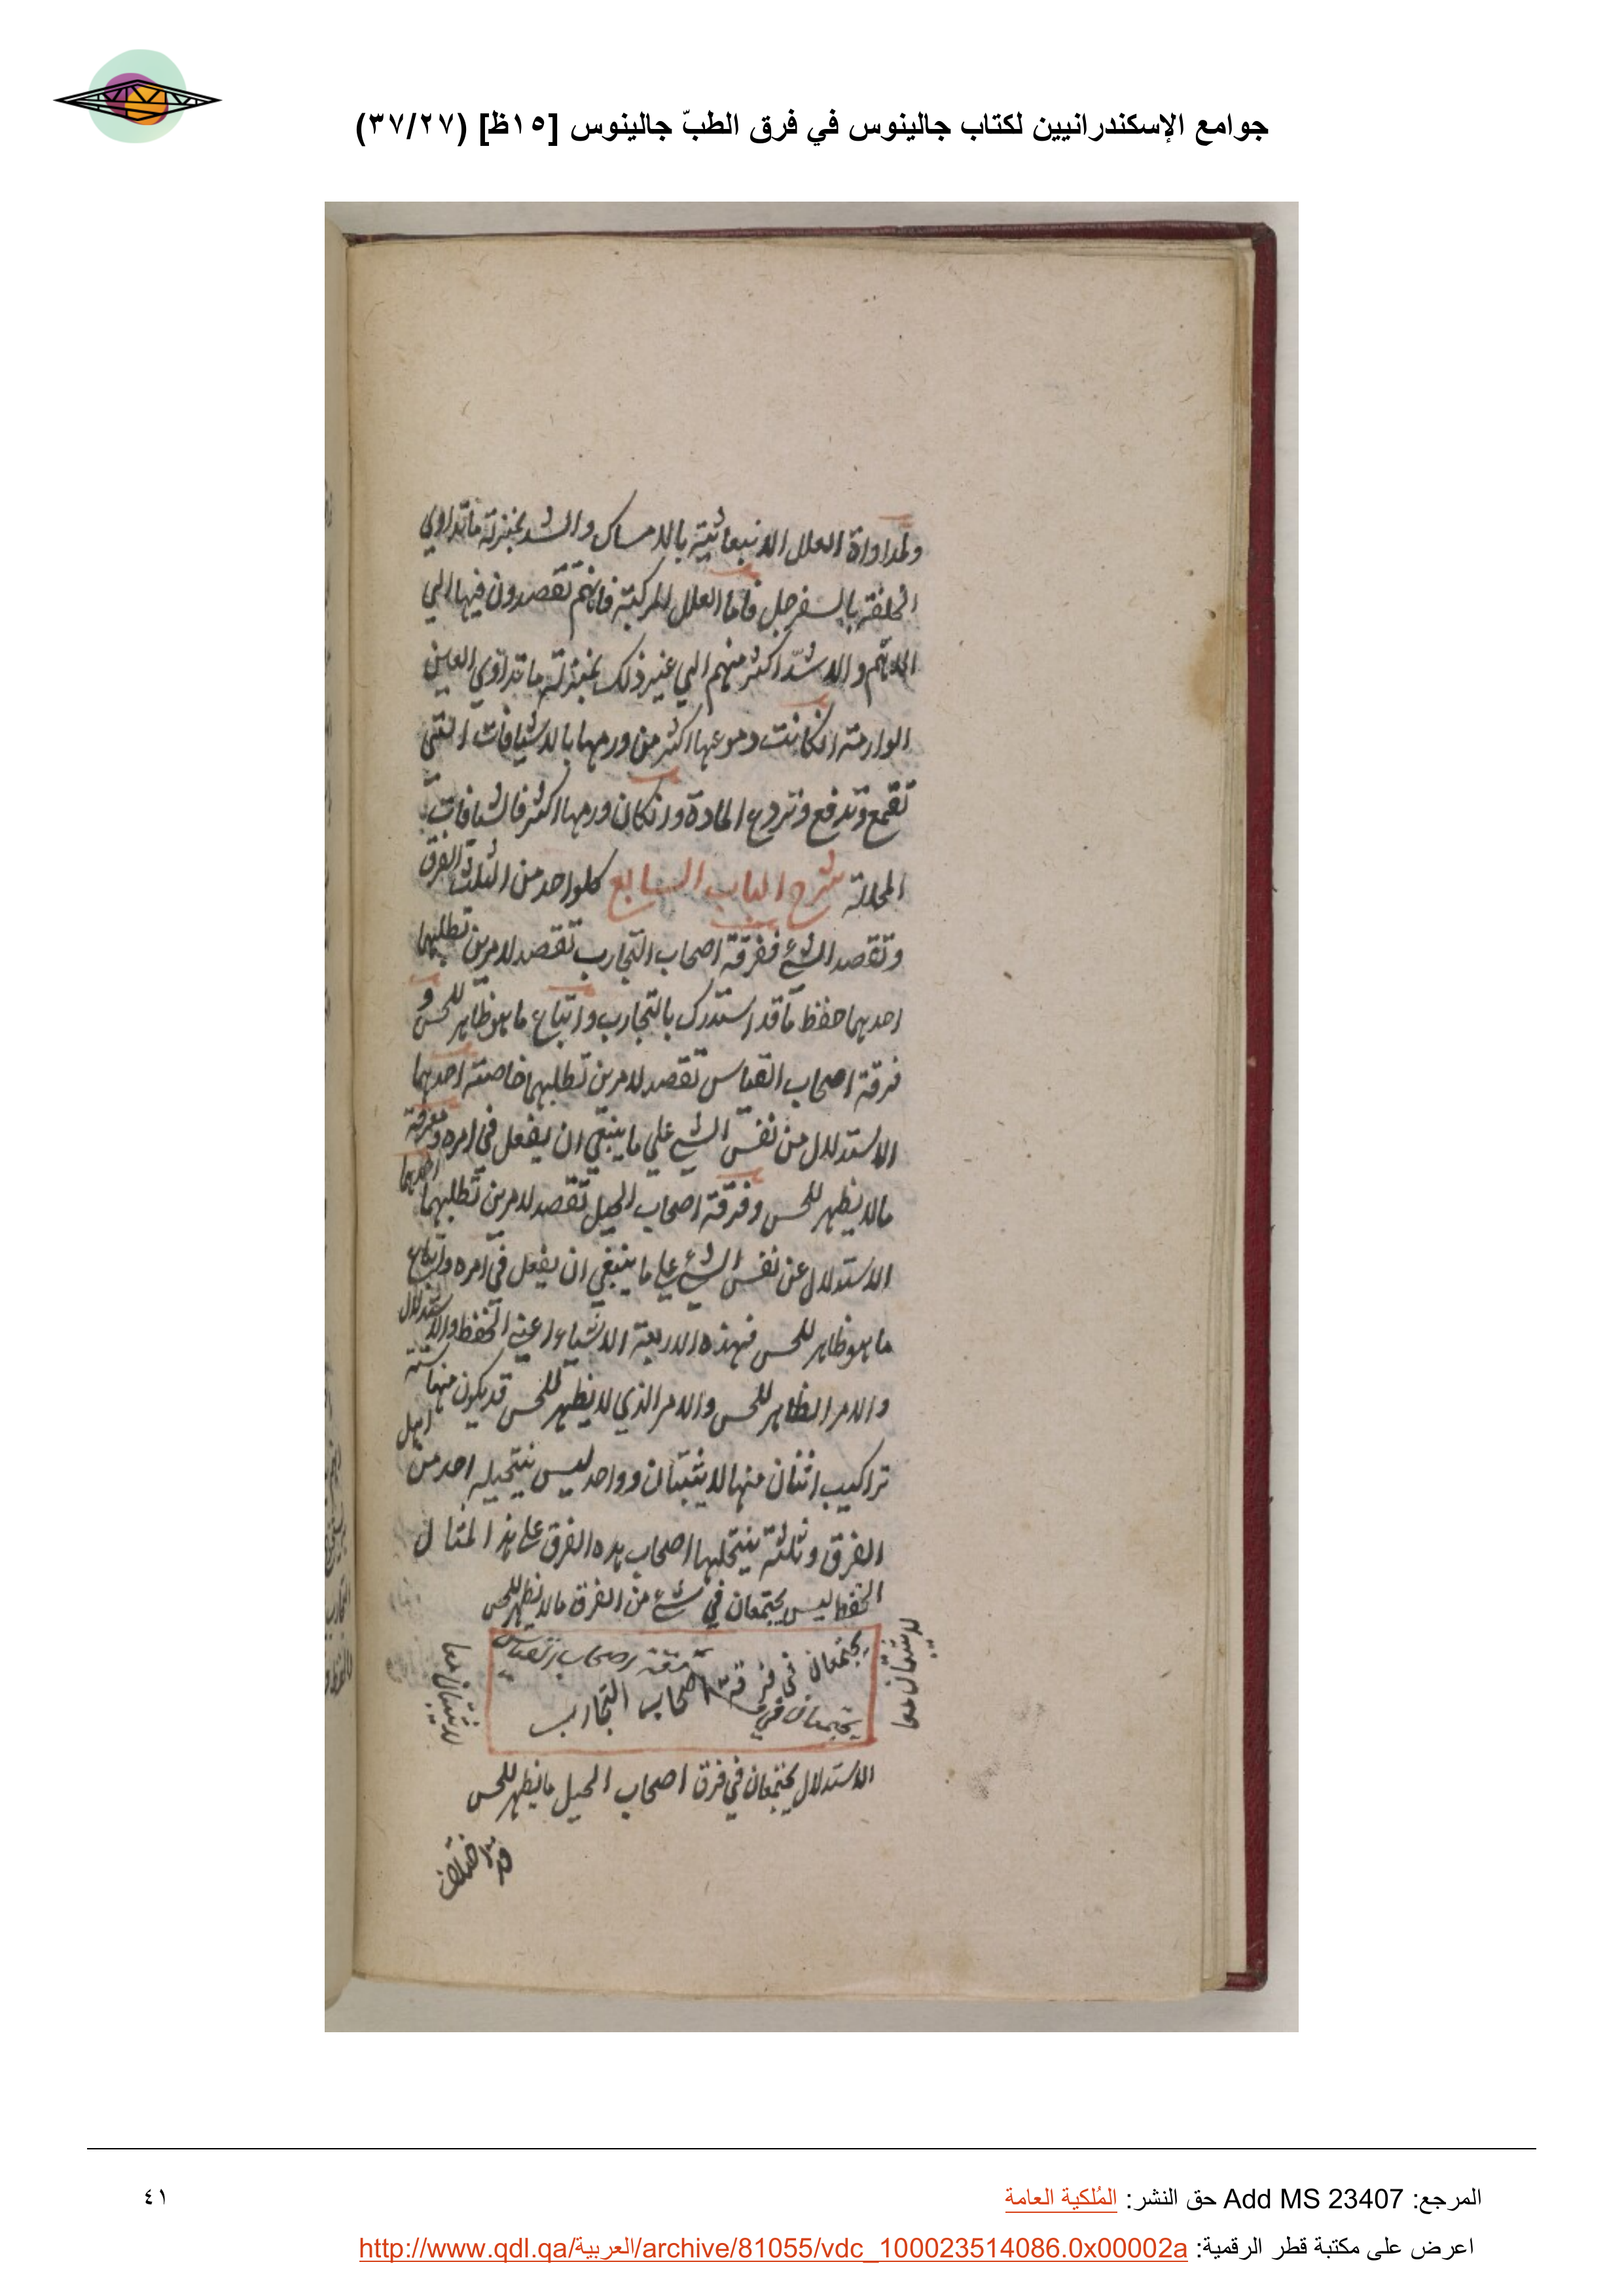 جوامع الإسكندرانيين لكتاب جالينوس في فرق الطبّ جالينوس [١٥ظ] (٣٧/٢٧)
ولمداواة العلل الانبعاثية بالامساك والشد بمنزلة ما تداوي
الخلفة بالسفرجل فاما العلل المركبة فانهم تقصدون فيها الي
الاهم والاشد اكثر منهم الي غير ذلك بمنزلة ما تداوي العين
الوارمة انكانت دموعها اكثر من ورمها بالاشيافات التي
تقمع وتدفع وتردع المادة وانكان ورمها اكثر فالشيافات
المحللة شرح الباب السابع كلواحد من الثلث الفرق
وتقصد الشيء ففرقة اصحاب التجارب تقصد لامرين تطلبهما
احديهما حفظ ما قد استدرك بالتجارب واتباع ما هو ظاهر للحس و
فرقة اصحاب القياس تقصد لامرين تطلبهما خاصته احديهما
الاستدلال من نفس الشيء علي ما ينبغي ان يفعل في امره ومعرفة
مالا يظهر للحس وفرقة اصحاب الحيل تقصد لامرين تطلبهما احديهما
الاستدلال عن نفس الشيء علي ما ينبغي ان يفعل في امره واتباع
ما هو ظاهر للحس فهذه الاربعة الاشياء اعني الحفظ والاستدلال
والامر الظاهر للحس والامر الذي لا يظهر للحس قد يكون منها ستة
تراكيب اثنان منها لا يثبتان وواحد ليس ينتحيله احد من اهل
الفرق وثلثة ينتحلها اصحاب هده الفرق علي هذا المثال
الحفظ ليس يجتمعان في شيء من الفرق مالا يظهر للحس
يجتمعان في فرقة اصحاب القياس
يجتمعان في فرقة اصحاب التجارب
لا يثبتان معا
لا يثبتان معا
الاستدلال يجتمعان في فرق اصحاب الحيل ما يظهر للحس
المرجع: Add MS 23407 حق النشر: المُلكية العامة
٤١
اعرض على مكتبة قطر الرقمية: http://www.qdl.qa/العربية/archive/81055/vdc_100023514086.0x00002a